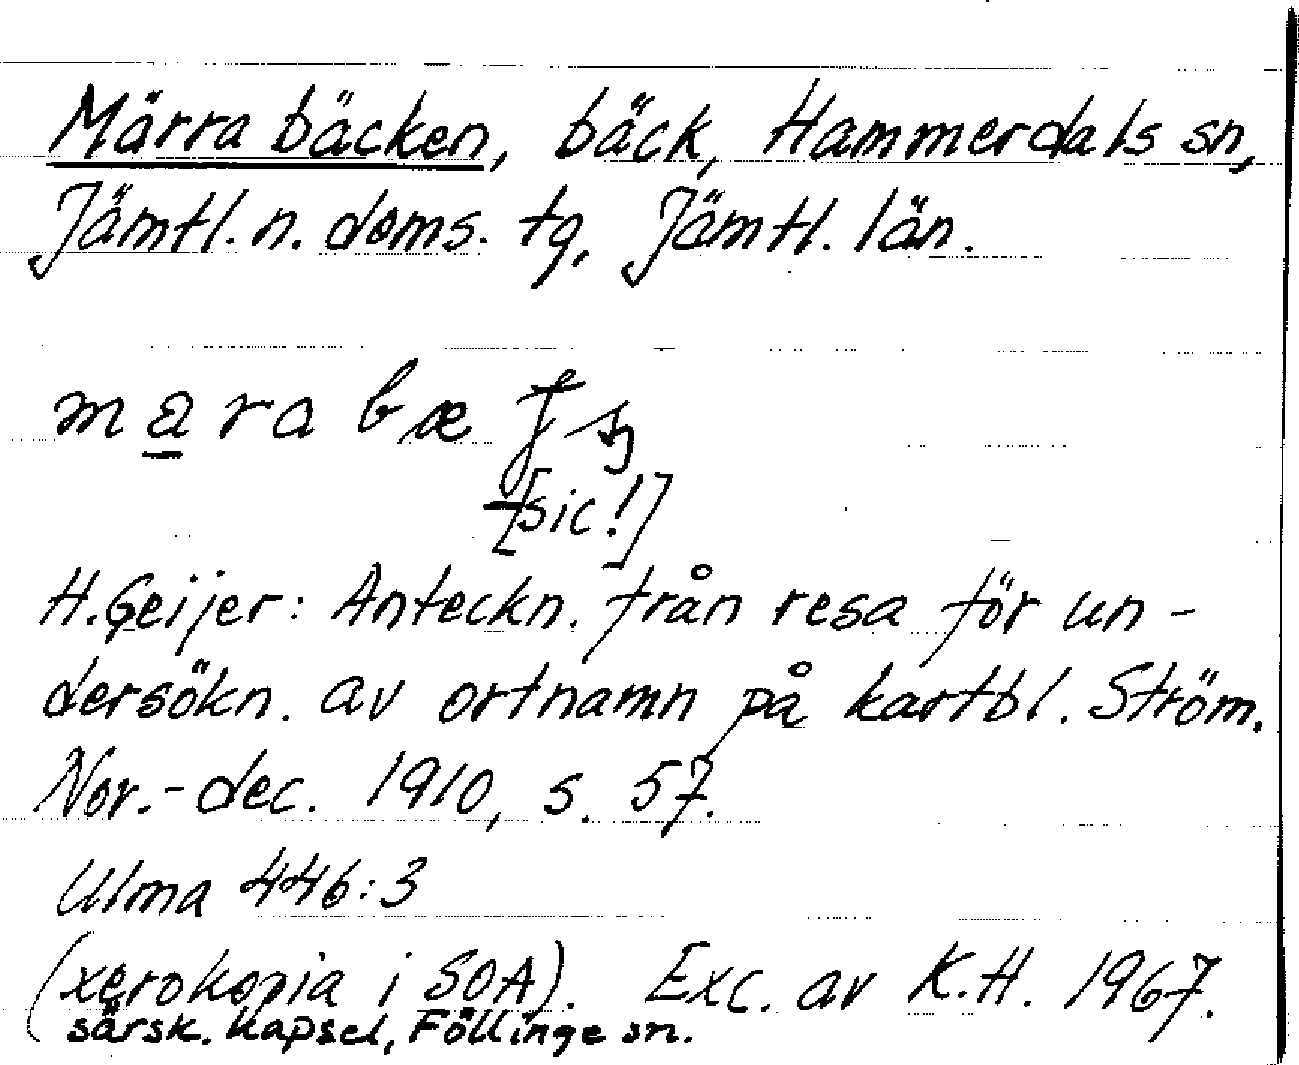 Märrabäcken, bäck, Hammerdals sn,
Jämtl. n. doms. tg, Jämtl. län.
mara bæ
[sic!]
H. Geijer: Anteckn. från resa för un-
dersökn. av ortnamn på kartbl. Ström.
Nov.-dec. 1910, s. 57.
Ulma 446:3
(xerokopia i SOA). Exc. av K.H. 1967.
särsk. kapsel, Föllinge sn.